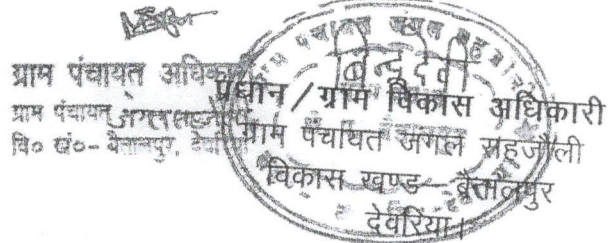 ग्राम पंचायत अधिकारी
ग्राम पंचायत जंगल सहजौली
वि० खं०- बैतालपुर, देवरिया
बिन्दु देवी
प्रधान / ग्राम विकास अधिकारी
ग्राम पंचायत जंगल सहजौली
विकास खण्ड- बैतालपुर
देवरिया।